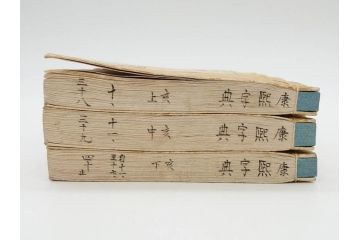 康熙字典 亥上 十、 三十八
康熙字典 亥中 十一、 三十九
康熙字典 亥下 四十止